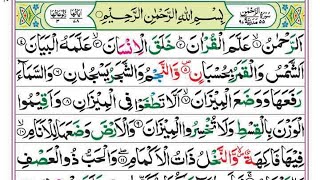 بِسْمِ اللهِ الرَّحْمٰنِ الرَّحِيْمِ
اَلرَّحْمٰنُ ۙ عَلَّمَ الْقُرْاٰنَ ؕ خَلَقَ الْاِنْسَانَ ۙ عَلَّمَهُ الْبَيَانَ
اَلشَّمْسُ وَالْقَمَرُ بِحُسْبَانٍ ۙ وَّالنَّجْمُ وَالشَّجَرُ يَسْجُدٰنِ وَالسَّمَآءَ
رَفَعَهَا وَوَضَعَ الْمِيْزَانَ ۙ اَلَّا تَطْغَوْا فِى الْمِيْزَانِ وَاَقِيْمُوا
الْوَزْنَ بِالْقِسْطِ وَلَا تُخْسِرُوا الْمِيْزَانَ وَالْاَرْضَ وَضَعَهَا لِلْاَنَامِ
فِيْهَا فَاكِهَةٌ وَّالنَّخْلُ ذَاتُ الْاَكْمَامِ وَالْحَبُّ ذُو الْعَصْفِ